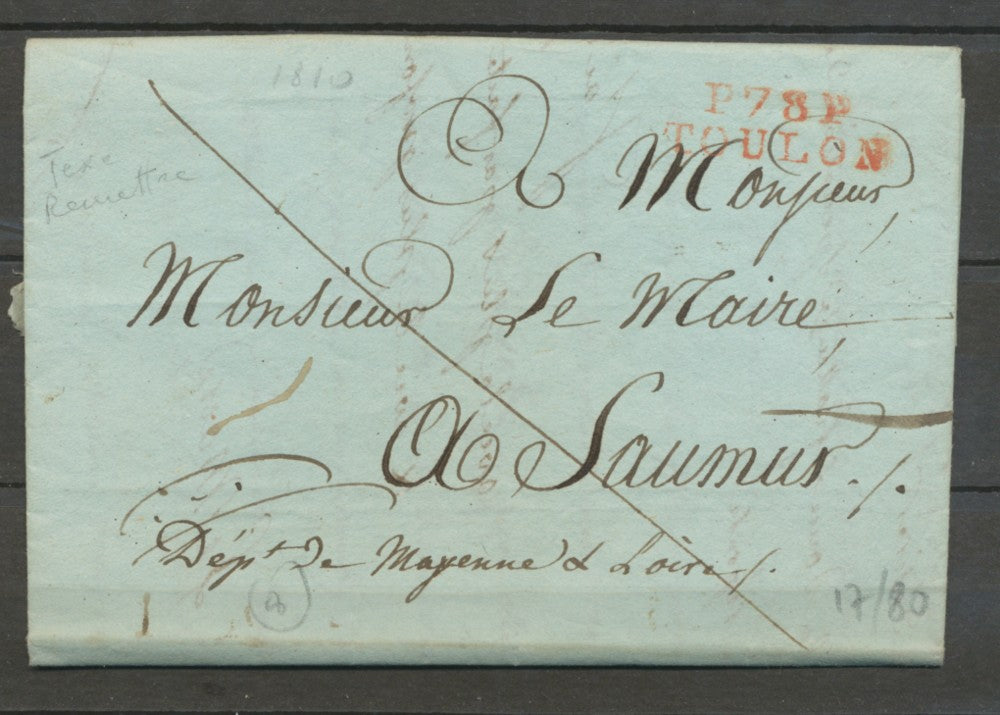 1810
P78P
TOULON
Texe
Remettre
A Monsieur,
Monsieur Le Maire,
A Saumur ./.
Dépt. de Mayenne & Loire /.
17/80